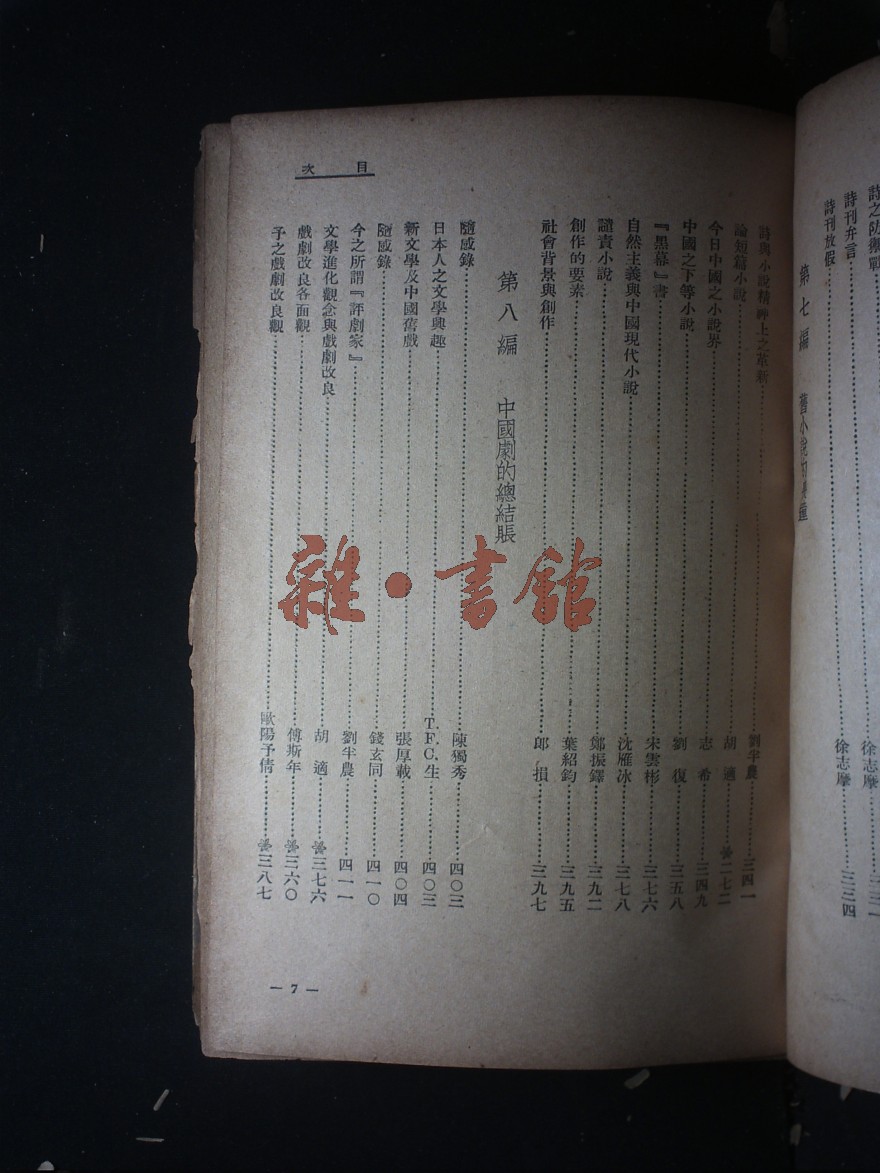 詩之防禦戰
徐志摩 三三一
詩刊弁言
徐志摩 三三四
詩刊放假
第七編 舊小說的喪鐘
目次
詩與小說精神上之革新 劉半農 三四一
論短篇小說 胡適 二七二
今日中國之小說界 志希 三四九
中國之下等小說 劉復 三五八
『黑幕』書 宋雲彬 三七六
自然主義與中國現代小說 沈雁冰 三七八
譴責小說 鄭振鐸 三九二
創作的要素 葉紹鈞 三九五
社會背景與創作 郎損 三九七
第八編 中國劇的總結賬
隨感錄 陳獨秀 四〇三
日本人之文學興趣 T.F.C.生 四〇三
新文學及中國舊戲 張厚載 四〇四
隨感錄 錢玄同 四一〇
今之所謂『評劇家』 劉半農 四一一
文學進化觀念與戲劇改良 胡適 三七六
戲劇改良各面觀 傅斯年 三六〇
予之戲劇改良觀 歐陽予倩 三八七
— 7 —
雜·書館